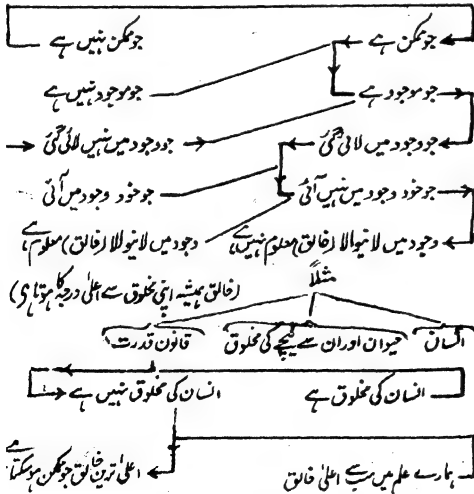 جو ممکن ہے جو ممکن نہیں ہے
جو موجود ہے جو موجود نہیں ہے
جو وجود میں لائی گئی جو وجود میں نہیں لائی گئی
جو خود وجود میں نہیں آئی جو خود وجود میں آئی
وجود میں لانیوالا (خالق) معلوم نہیں ہے وجود میں لانیوالا (خالق) معلوم ہے
مثلاً (خالق ہمیشہ اپنی مخلوق سے اعلیٰ درجہ کا ہوتا ہے)
انسان حیوان اور ان سے نیچے کی مخلوق قانون قدرت
انسان کی مخلوق ہے انسان کی مخلوق نہیں ہے
ہمارے علم میں سب سے اعلیٰ خالق اعلیٰ ترین خالق جو ممکن ہو سکتا ہے